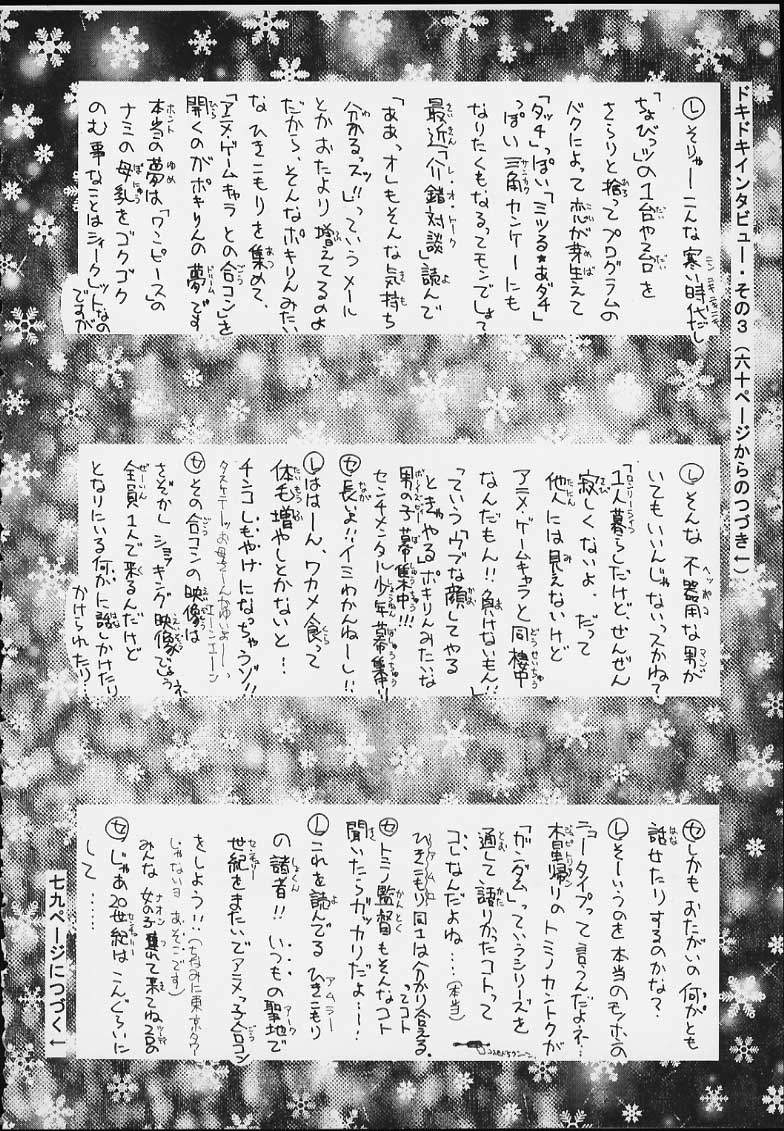 ドキドキインタビュー・その３（六十ページからのつづき←）
Ⓛそりゃーこんな寒い時代だし
「なびッツ」の1台や2台を
さらりと捨ってプログラムの
バクによって恋が芽生えて
「タッチ」っぽい「ミツる★あダチ」
っぽい三角カンケーにも
なりたくもなるってモンでしょて
最近「介錯対談」読んで
「ああっオレもそんな気持ち
分かるっスッ!!」っていうメール
とかおたより増えてるのよ
だから、そんなポキりんみたい
なひきこもりを集めて、
「アニメ・ゲームキャラとの合コン」を
開くのがポキりんの夢です
本当の夢は「ワンピース」の
ナミの母乳をゴクゴク
のむ事なことはシィークレットなの
ですが
Ⓛそんな不器用な男が
いてもいいんじゃないってかね?
1人暮らしだけど、ぜんぜん
寂しくないよ。だって
他人には見えないけど
アニメ・ゲームキャラと同棲中
なんだもん!!負けないもん!!」
「ていうウブな顔してやる
ときゃやるポキりんみたいな
男の子募集中!!!
センチメンタル少年募集中!!
長いよ!!イミわかんねーし!!
Ⓛははーん、ワカメ食って
体毛増やしとかないと!!
チンコしもやけになっちゃうゾ!!
その合コンの映像は
さぞかしショッキング映像でしょうネ、
全員1人で来るんだけど
となりにいる何かに話しかけたり
かけられたり…
しかもおたがいの何かとも
話せたりするのかな?
Ⓛそーいうのを本当のモンホンの
ニュータイプって言うんだよネ…
木星帰りのトミノカントクが
「ガンダム」っていうシリーズを
通して語りかったコトって
コレなんだよね…(本当)
ひきこもり同士は分かり合える。
ってコト
トミノ監督もそんなコト
聞いたらガッカリだよ…!
Ⓛこれを読んでるひきこもり
の諸君!!いつもの聖地で
世紀をまたいでアニメっ子合コン
をしよう!!(ちなみに東京タワー
じゃないヨ あそこです)
みんな女の子連れて来てね2台の
じゃあ20世紀はこんぐらいに
して……
七九ページにつづく←